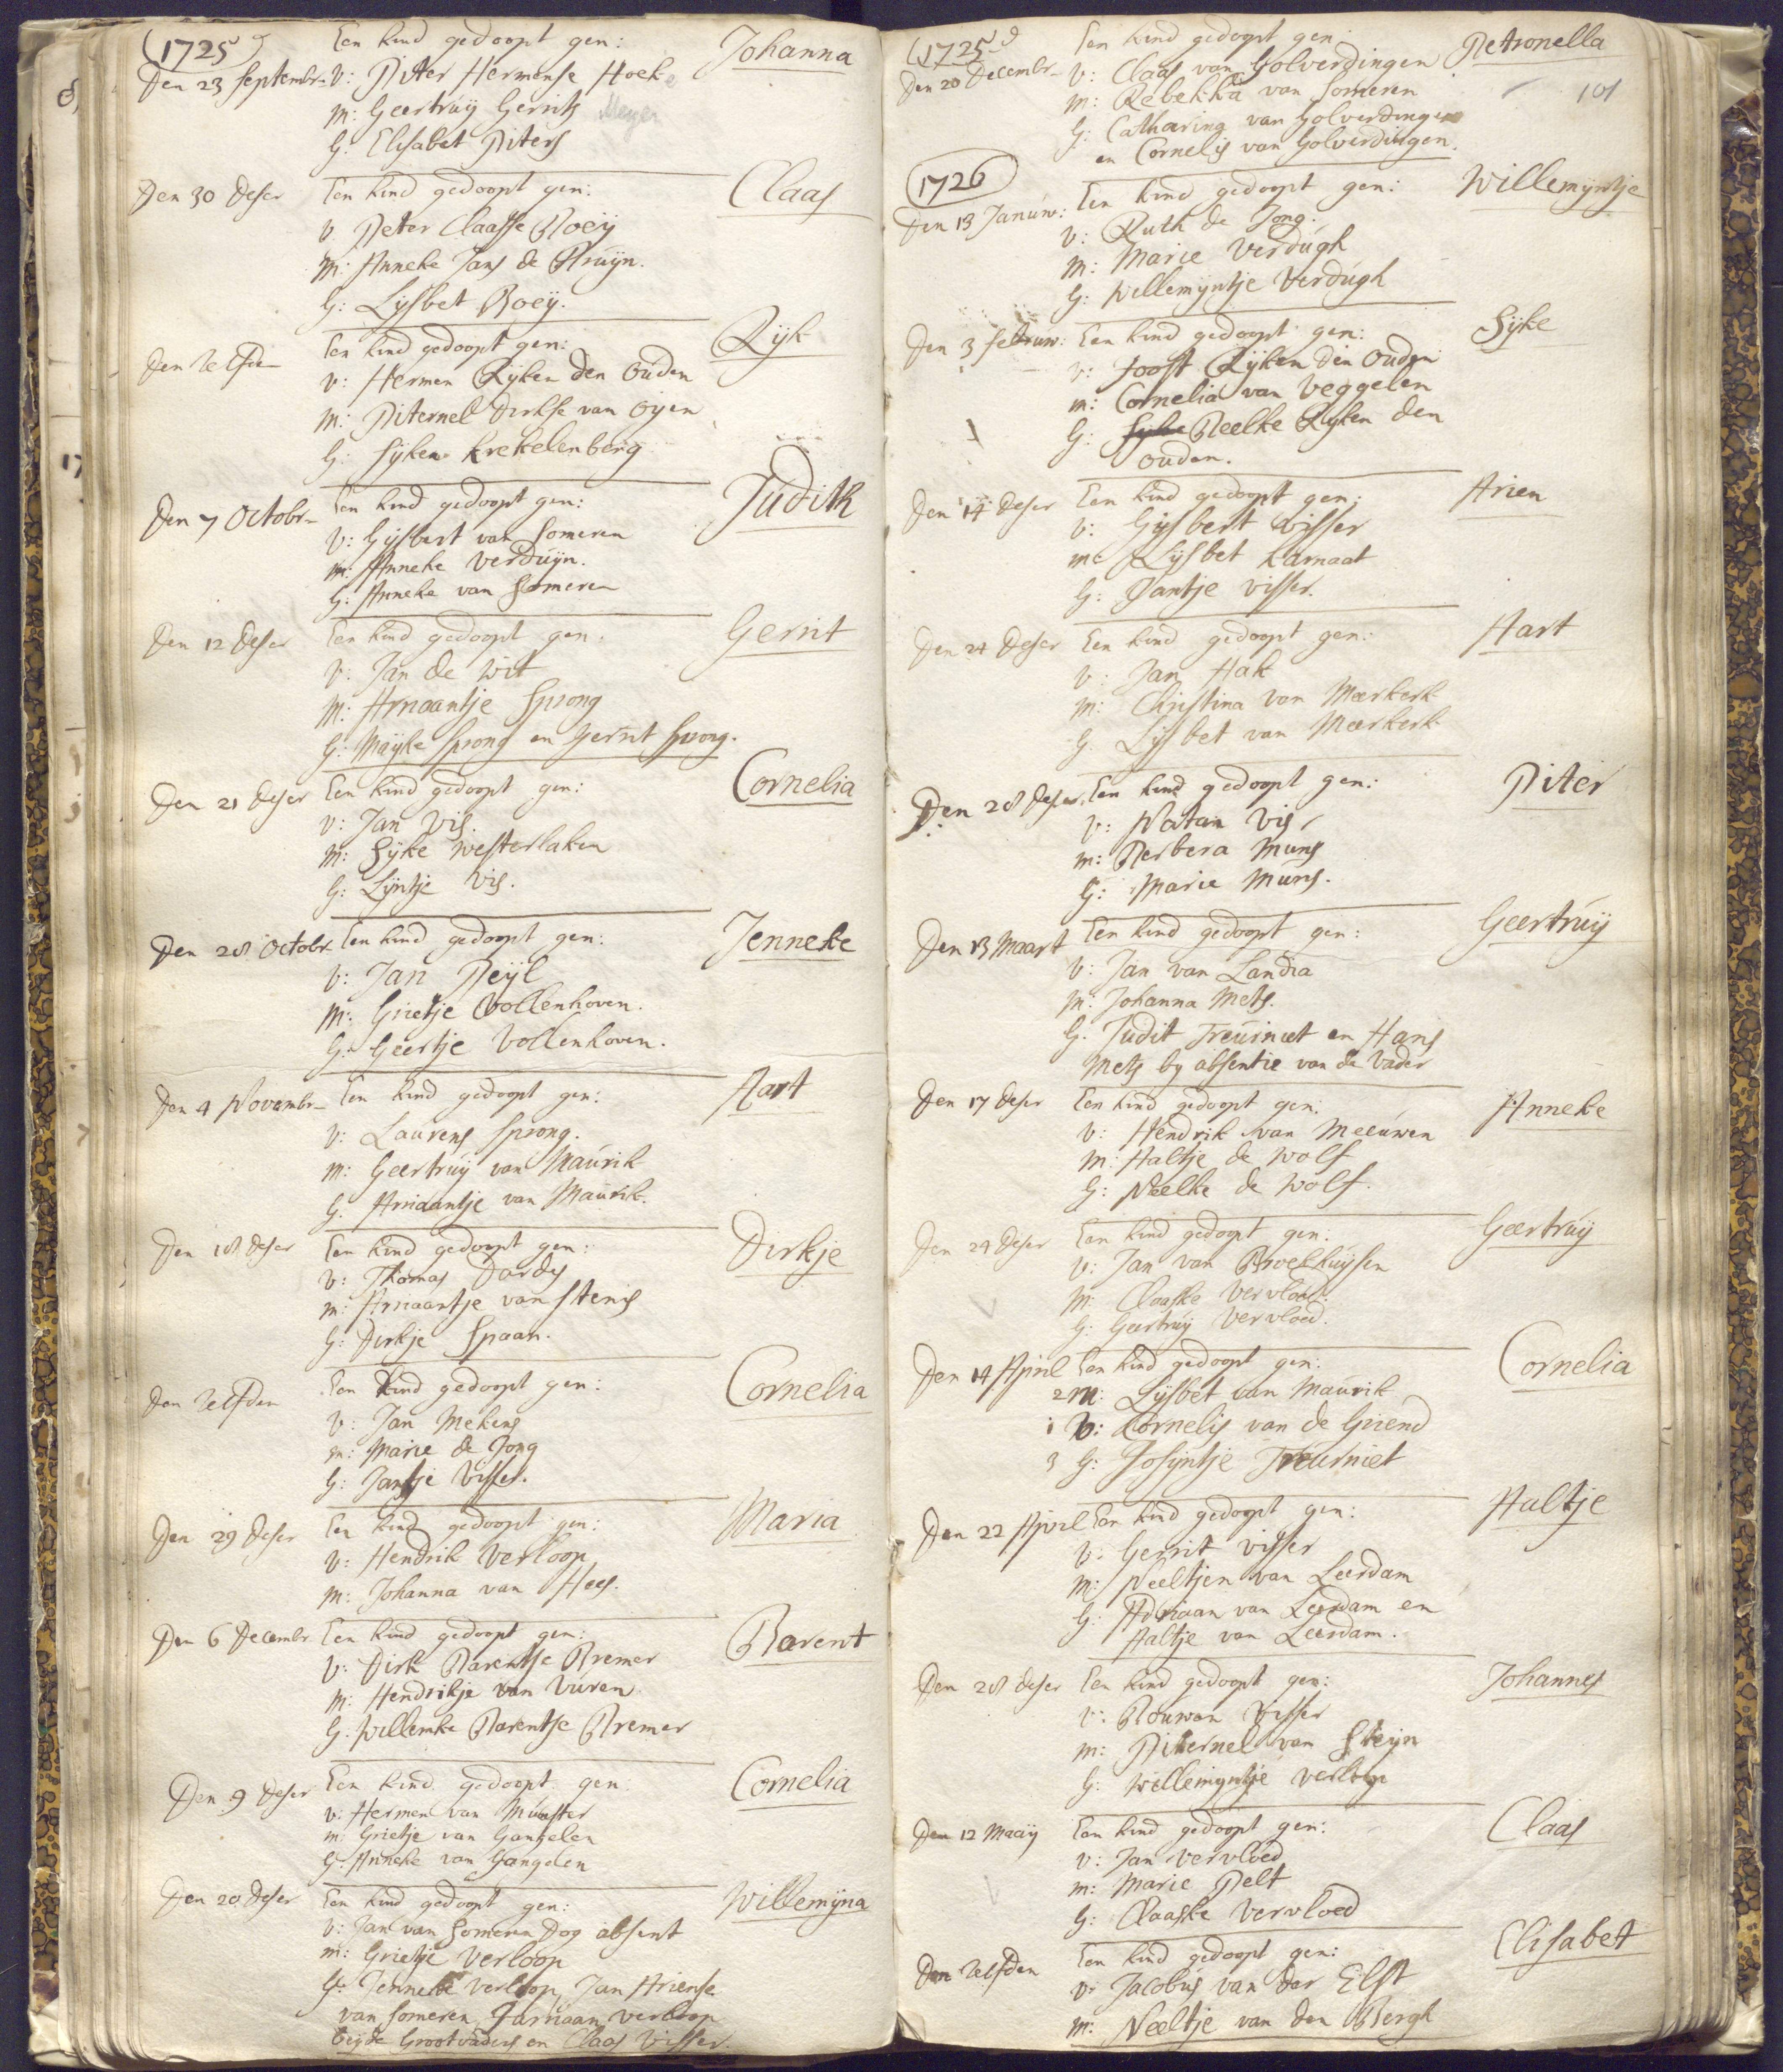 (1725)
Een kind gedoopt gen: Johanna
Den 23 Septembr- V: Piter Hermense Hoek
M: Geertruy Gerrits Meyer
G: Elisabet Piters
Den 30 deser Een kind gedoopt gen: Claas
V. Peter Claasse Boeij
M: Anneke Jans de Bruijn.
G: Lijsbet Boeij.
Den Zelfden Een kind gedoopt gen: Rijk
V: Hermen Rijken den Ouden
M: Piternel Dirkse van Oijen
G: Sijken Krekelenberg
Den 7 Octobr- Een kind gedoopt gen: Judith
V: Gijsbert van Someren
M: Anneke Verduijn.
G: Anneke van Someren
Den 12 deser Een kind gedoopt gen: Gerrit
V: Jan de Wit
M: Ariaantje Sprong
G: Maijke Sprong en Gerrit Sprong.
Den 21 deser Een kind gedoopt gen: Cornelia
V: Jan Vis.
M: Sijke Westerlaken
G: Lijntje Vis.
Den 28 Octobr- Een kind gedoopt gen: Jenneke
V: Jan Peijl
M: Grietje Vollenhoven.
G: Geertje Vollenhoven.
Den 4 Novembr- Een kind gedoopt gen: Aart
V: Laurens Sprong.
M: Geertruij van Maurik
G. Ariaantje van Maurik.
Den 18 deser Een kind gedoopt gen: Dirkje
V: Thomas Dardes
M: Ariaantje van Stenis
G: Dirkje Spaan.
Den Zelfden Een kind gedoopt gen: Cornelia
V: Jan Mekens
M: Marie de Jong
G: Jantje Visser.
Den 29 deser Een kind gedoopt gen: Maria
V: Hendrik Verloop
M: Johanna van Hees.
Den 6 Decembr Een kind gedoopt gen: Barent
V: Dirk Barentse Bremer
M: Hendrikje van Vuren
G. Willemke Barentse Bremer
Den 9 deser Een kind gedoopt gen: Cornelia
V: Hermen van Munster
M: Grietje van Gangelen
G: Anneke van Gangelen
Den 20 deser Een kind gedoopt gen: Willemijna
V: Jan van Someren Dog absent
M: Grietje Verloop
G: Jenneke Verloop, Jan Ariense
van Someren, Jarriaan Verloop
beijde Grootvaders en Claas Visser.
(1725)
Een kind gedoopt gen: Petronella
Den 20 Decembr- V: Claas van Golverdingen
101
M: Rebekka van Someren
G: Catharina van Golverdingen
en Cornelis van Golverdingen.
1726
Den 13 Januw: Een kind gedoopt gen: Willemijntje
V: Ruth de Jong.
M: Marie Verdugh
G: Willemijntje Verdugh
Den 3 Februw: Een kind gedoopt gen: Sijke
V: Joost Rijken den Ouden
M: Cornelia van Veggelen
G: Neelke Rijken den
Ouden.
Den 14 deser Een kind gedoopt gen: Arien
V: Gijsbert Visser
M: Lijsbet Karnaat
G: Jantje Visser.
Den 24 deser Een kind gedoopt gen: Aart
V: Jan Hak
M: Christina van Meerkerk
G. Lijsbet van Meerkerk
Den 28 deser. Een kind gedoopt gen: Piter
V: Natan Vis
M: Berbera Muns
G: Marie Muns.
Den 13 Maart Een kind gedoopt gen: Geertruij
V: Jan van Landia
M: Johanna Mets.
G. Judit Treurniet en Hans
Mets by absentie van de Vader
Den 17 deser Een kind gedoopt gen: Anneke
V: Hendrik van Meeuwen
M: Aaltje de Wolf
G: Neelke de Wolf.
Den 24 deser Een kind gedoopt gen: Geertruij
V: Jan van Broekhuijsen
M: Claaske Vervloed.
G: Geertruij Vervloed.
Den 14 April Een kind gedoopt gen: Cornelia
2 M: Lijsbet van Maurik
1 V: Cornelis van de Griend
3 G: Josijntje Treurniet
Den 22 April Een kind gedoopt gen: Aaltje
V: Gerrit Visser
M: Neeltjen van Leerdam
G: Adriaan van Leerdam en
Aaltje van Leerdam.
Den 28 deser Een kind gedoopt gen: Johannes
V: Bouwen Visser
M: Piternel van Steijn
G: Willemijntje Verloop
Den 12 Maaij Een kind gedoopt gen: Claas
V: Jan Vervloed
M: Marie Pelt
G: Claaske Vervloed
Den Zelfden Een kind gedoopt gen: Elisabet
V: Jacobus van der Elst
M: Neeltje van den Bergh